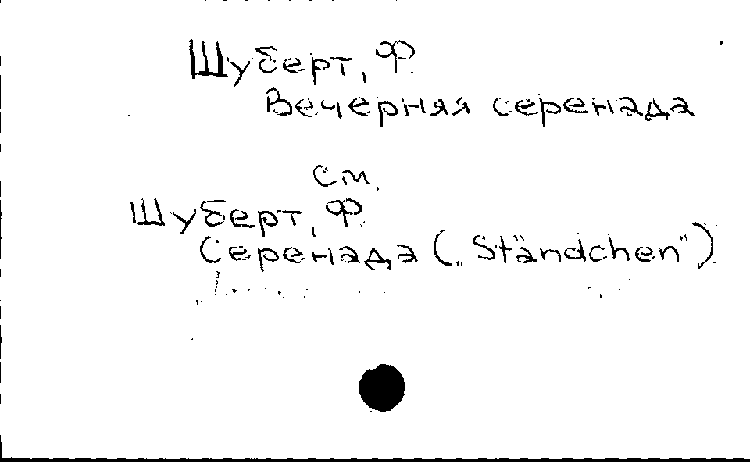 Шуберт, Ф.
Вечерняя серенада
см.
Шуберт, Ф.
Серенада („Ständchen")